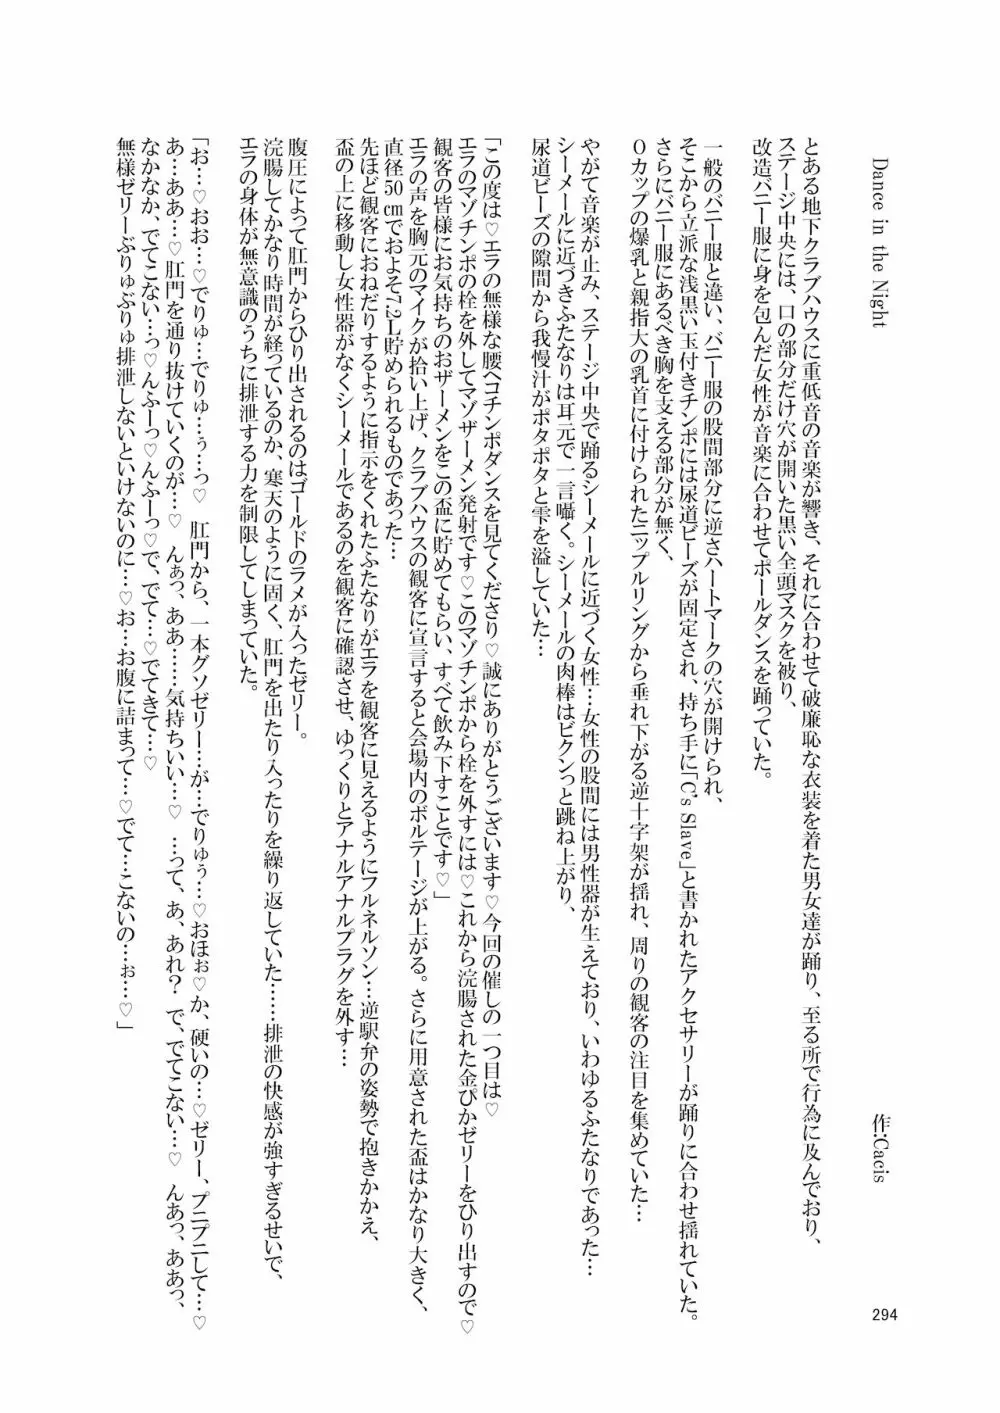 Dance in the Night
作：Cacis
とある地下クラブハウスに重低音の音楽が響き、それに合わせて破廉恥な衣装を着た男女達が踊り、至る所で行為に及んでおり、
ステージ中央には、口の部分だけ穴が開いた黒い全頭マスクを被り、
改造バニー服に身を包んだ女性が音楽に合わせてポールダンスを踊っていた。
一般のバニー服と違い、バニー服の股間部分に逆さハートマークの穴が開けられ、
そこから立派な浅黒い玉付きチンポには尿道ビーズが固定され、持ち手に「C's Slave」と書かれたアクセサリーが踊りに合わせ揺れていた。
さらにバニー服にあるべき胸を支える部分が無く、
Ｏカップの爆乳と親指大の乳首に付けられたニップルリングから垂れ下がる逆十字架が揺れ、周りの観客の注目を集めていた…
やがて音楽が止み、ステージ中央で踊るシーメールに近づく女性…女性の股間には男性器が生えており、いわゆるふたなりであった…
シーメールに近づきふたなりは耳元で一言囁く。シーメールの肉棒はビクンっと跳ね上がり、
尿道ビーズの隙間から我慢汁がポタポタと雫を溢していた…
「この度は♡エラの無様な腰ヘコチンポダンスを見てくださり♡誠にありがとうございます♡今回の催しの一つ目は♡
エラのマゾチンポの栓を外してマゾザーメン発射です♡このマゾチンポから栓を外すには♡これから浣腸された金ぴかゼリーをひり出すので♡
観客の皆様にお気持ちのおザーメンをこの盃に貯めてもらい、すべて飲み下すことです♡」
エラの声を胸元のマイクが拾い上げ、クラブハウスの観客に宣言すると会場内のボルテージが上がる。さらに用意された盃はかなり大きく、
直径50㎝でおよそ7.2L貯められるものであった…
先ほど観客におねだりするように指示をくれたふたなりがエラを観客に見えるようにフルネルソン…逆駅弁の姿勢で抱きかかえ、
盃の上に移動し女性器がなくシーメールであるのを観客に確認させ、ゆっくりとアナルアナルプラグを外す…
腹圧によって肛門からひり出されるのはゴールドのラメが入ったゼリー。
浣腸してかなり時間が経っているのか、寒天のように固く、肛門を出たり入ったりを繰り返していた……排泄の快感が強すぎるせいで、
エラの身体が無意識のうちに排泄する力を制限してしまっていた。
「お…♡おお…♡でりゅ…でりゅ…ぅ…っ♡　肛門から、一本グソゼリー…が…でりゅぅ…♡おほぉ♡か、硬いの…♡ゼリー、プニプニして…♡
あ…ああ…♡肛門を通り抜けていくのが…♡　んぁっ、ああ……気持ちいい…♡　…って、あ、あれ？　で、でてこない…♡　んあっ、ああっ、
なかなか、でてこない…っ♡んふーっ♡んふーっ♡で、でて…♡でてきて…♡
無様ゼリーぶりゅぶりゅ排泄しないといけないのに…♡お…お腹に詰まって…♡でて…こないの…ぉ…♡」
294